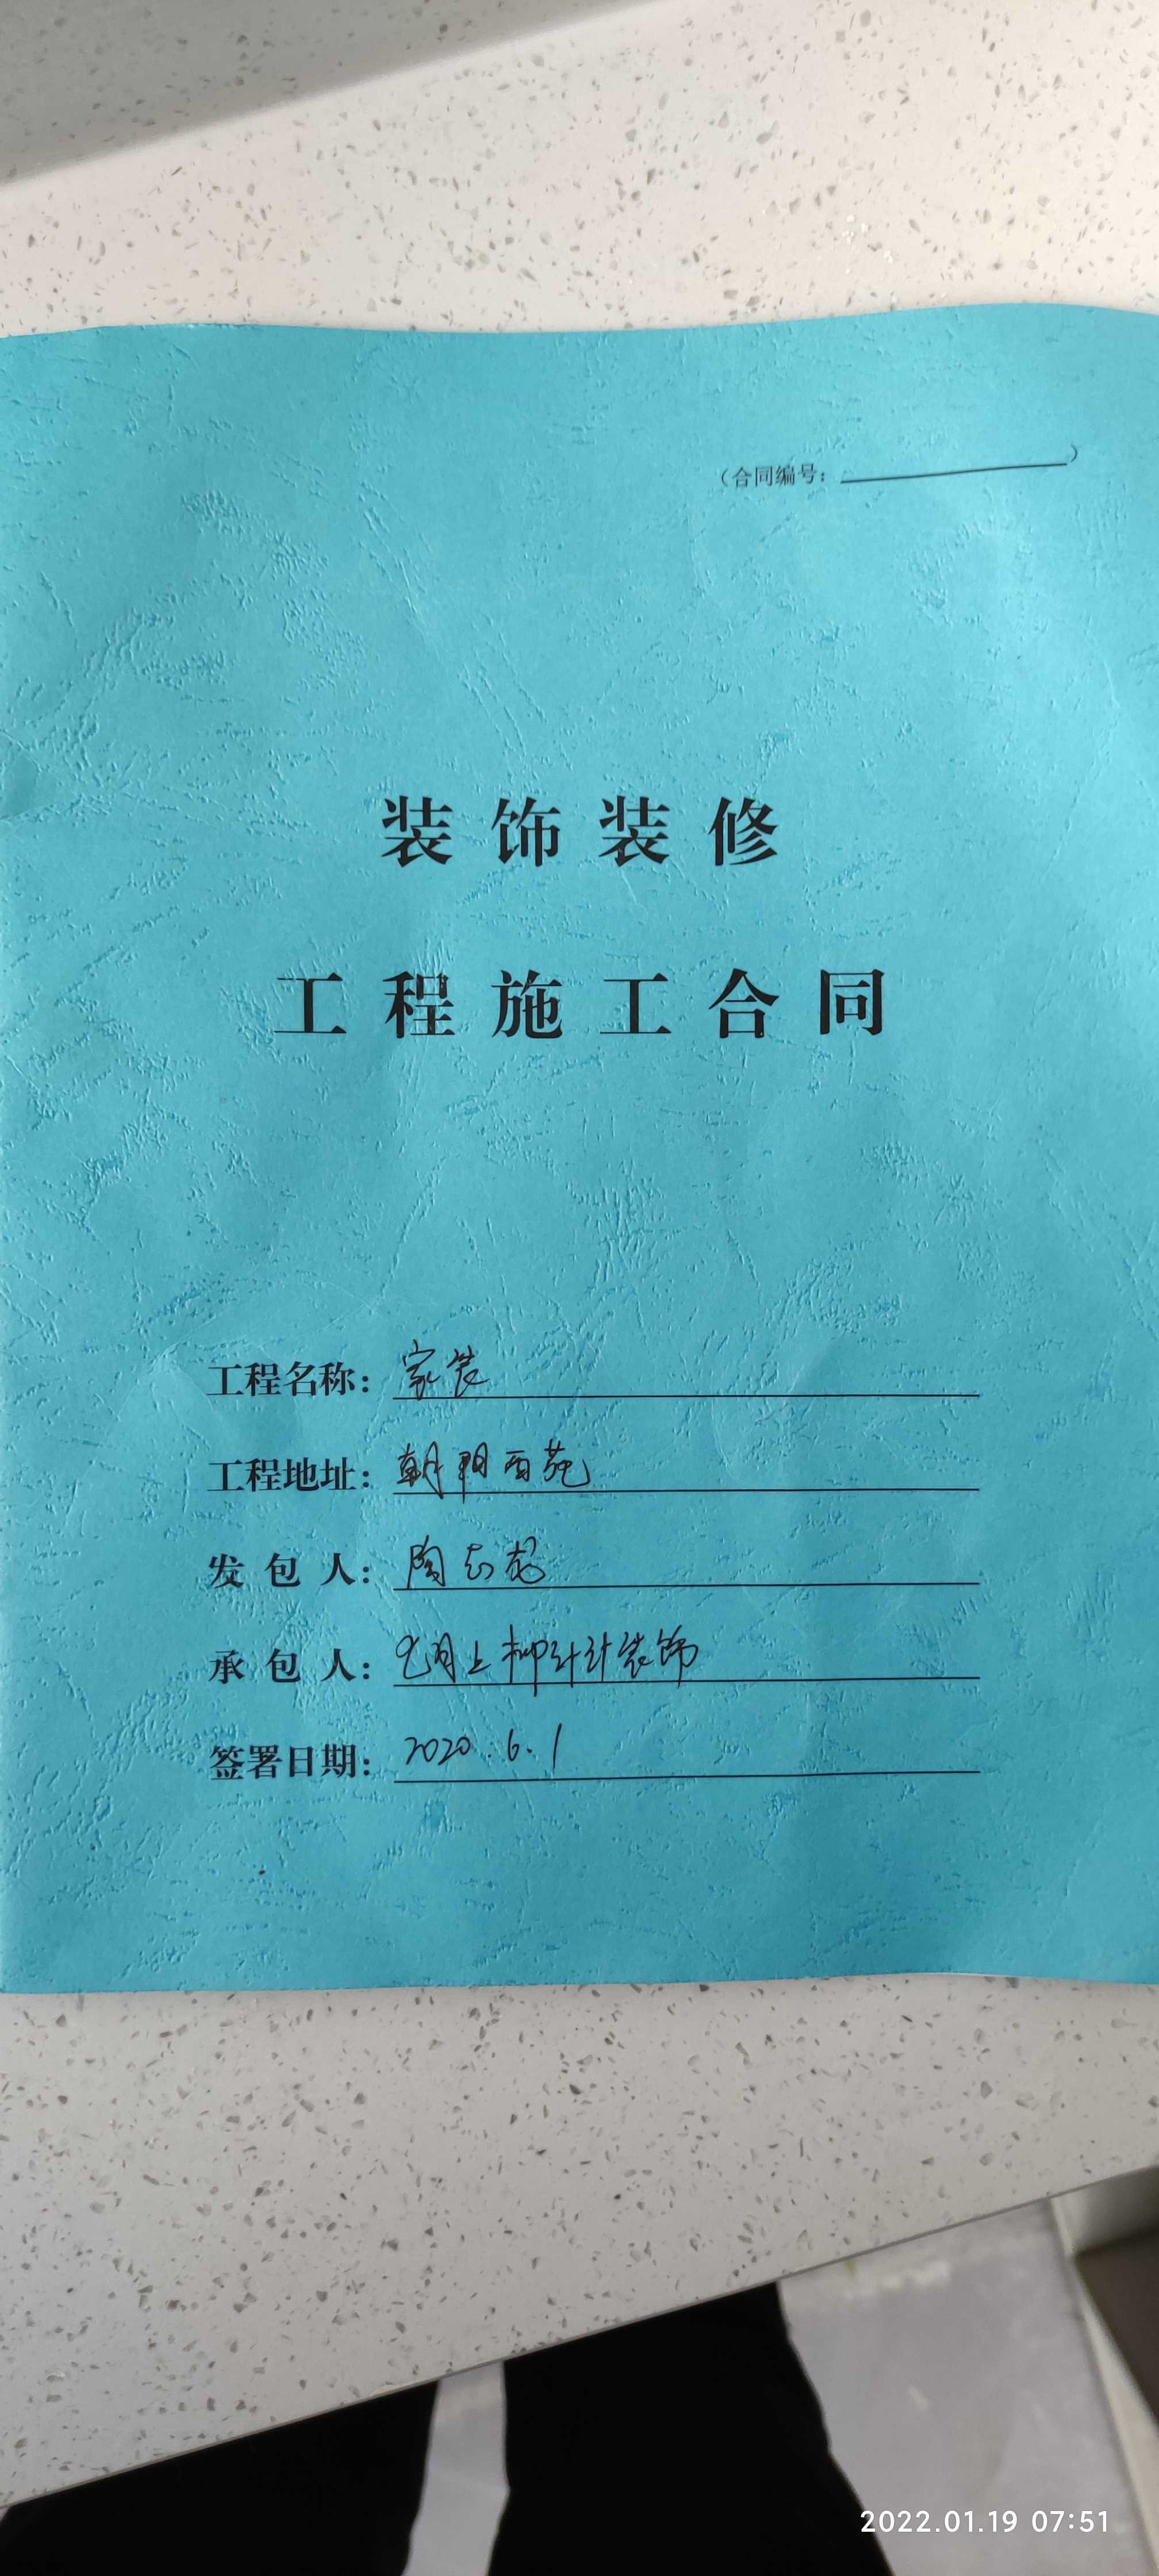 （合同编号：）
装饰装修
工程施工合同
工程名称：家装
工程地址：朝阳西苑
发包人：陶志龙
承包人：月上柳设计装饰
签署日期：2020.6.1
2022.01.19 07:51